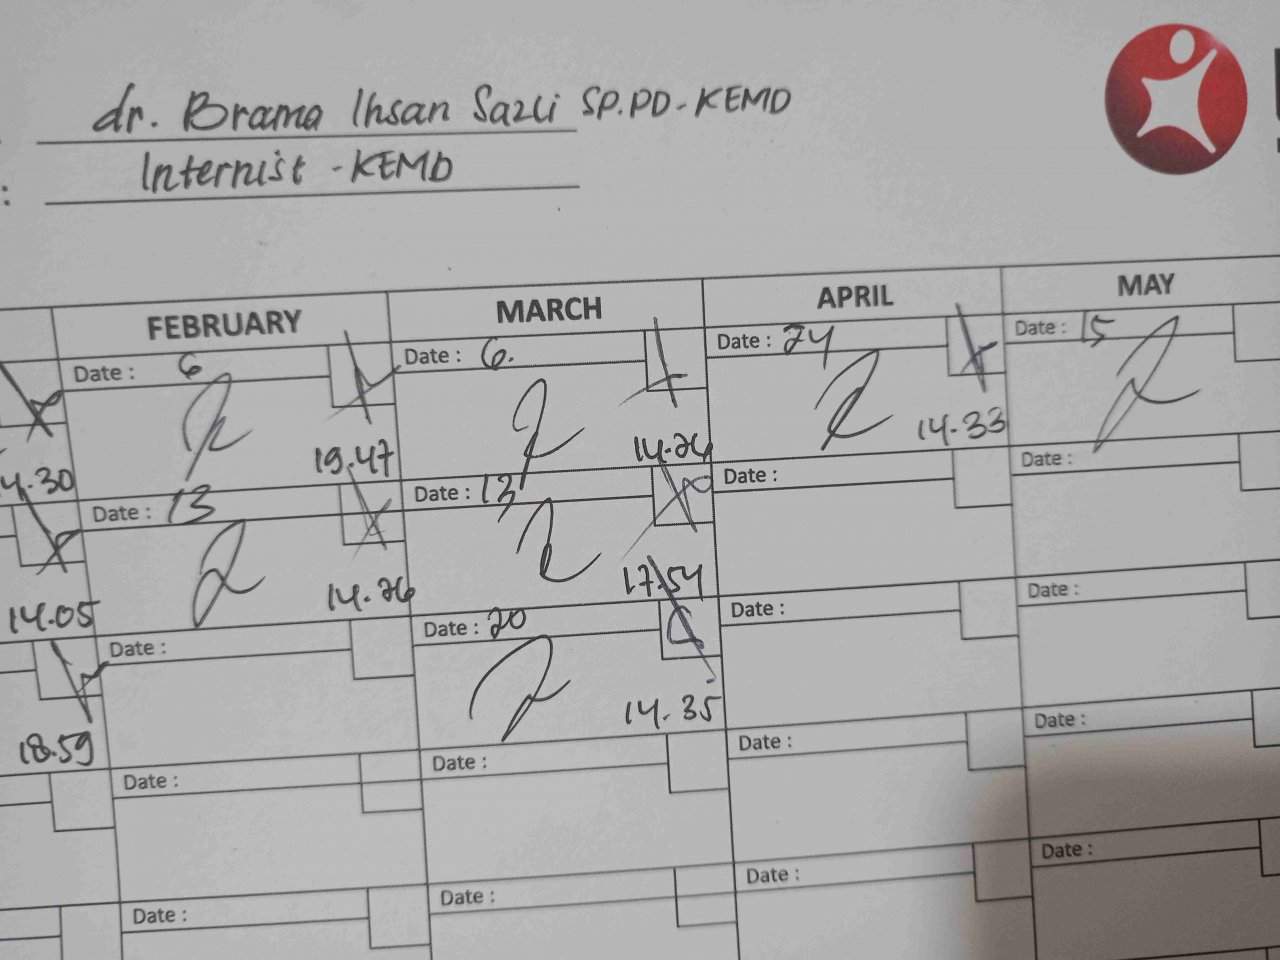 dr. Brama Ihsan Sazli SP.PD-KEMD
: Internist - KEMD
FEBRUARY MARCH APRIL MAY
Date : 6 Date : 6. Date : 24 Date : 15
14.30 19.47 14.26 14.33
Date : 13 Date : 13 Date : Date :
14.05 14.26 17.54
Date : Date : 20 Date : Date :
18.59 14.35
Date : Date : Date : Date :
Date : Date : Date : Date :